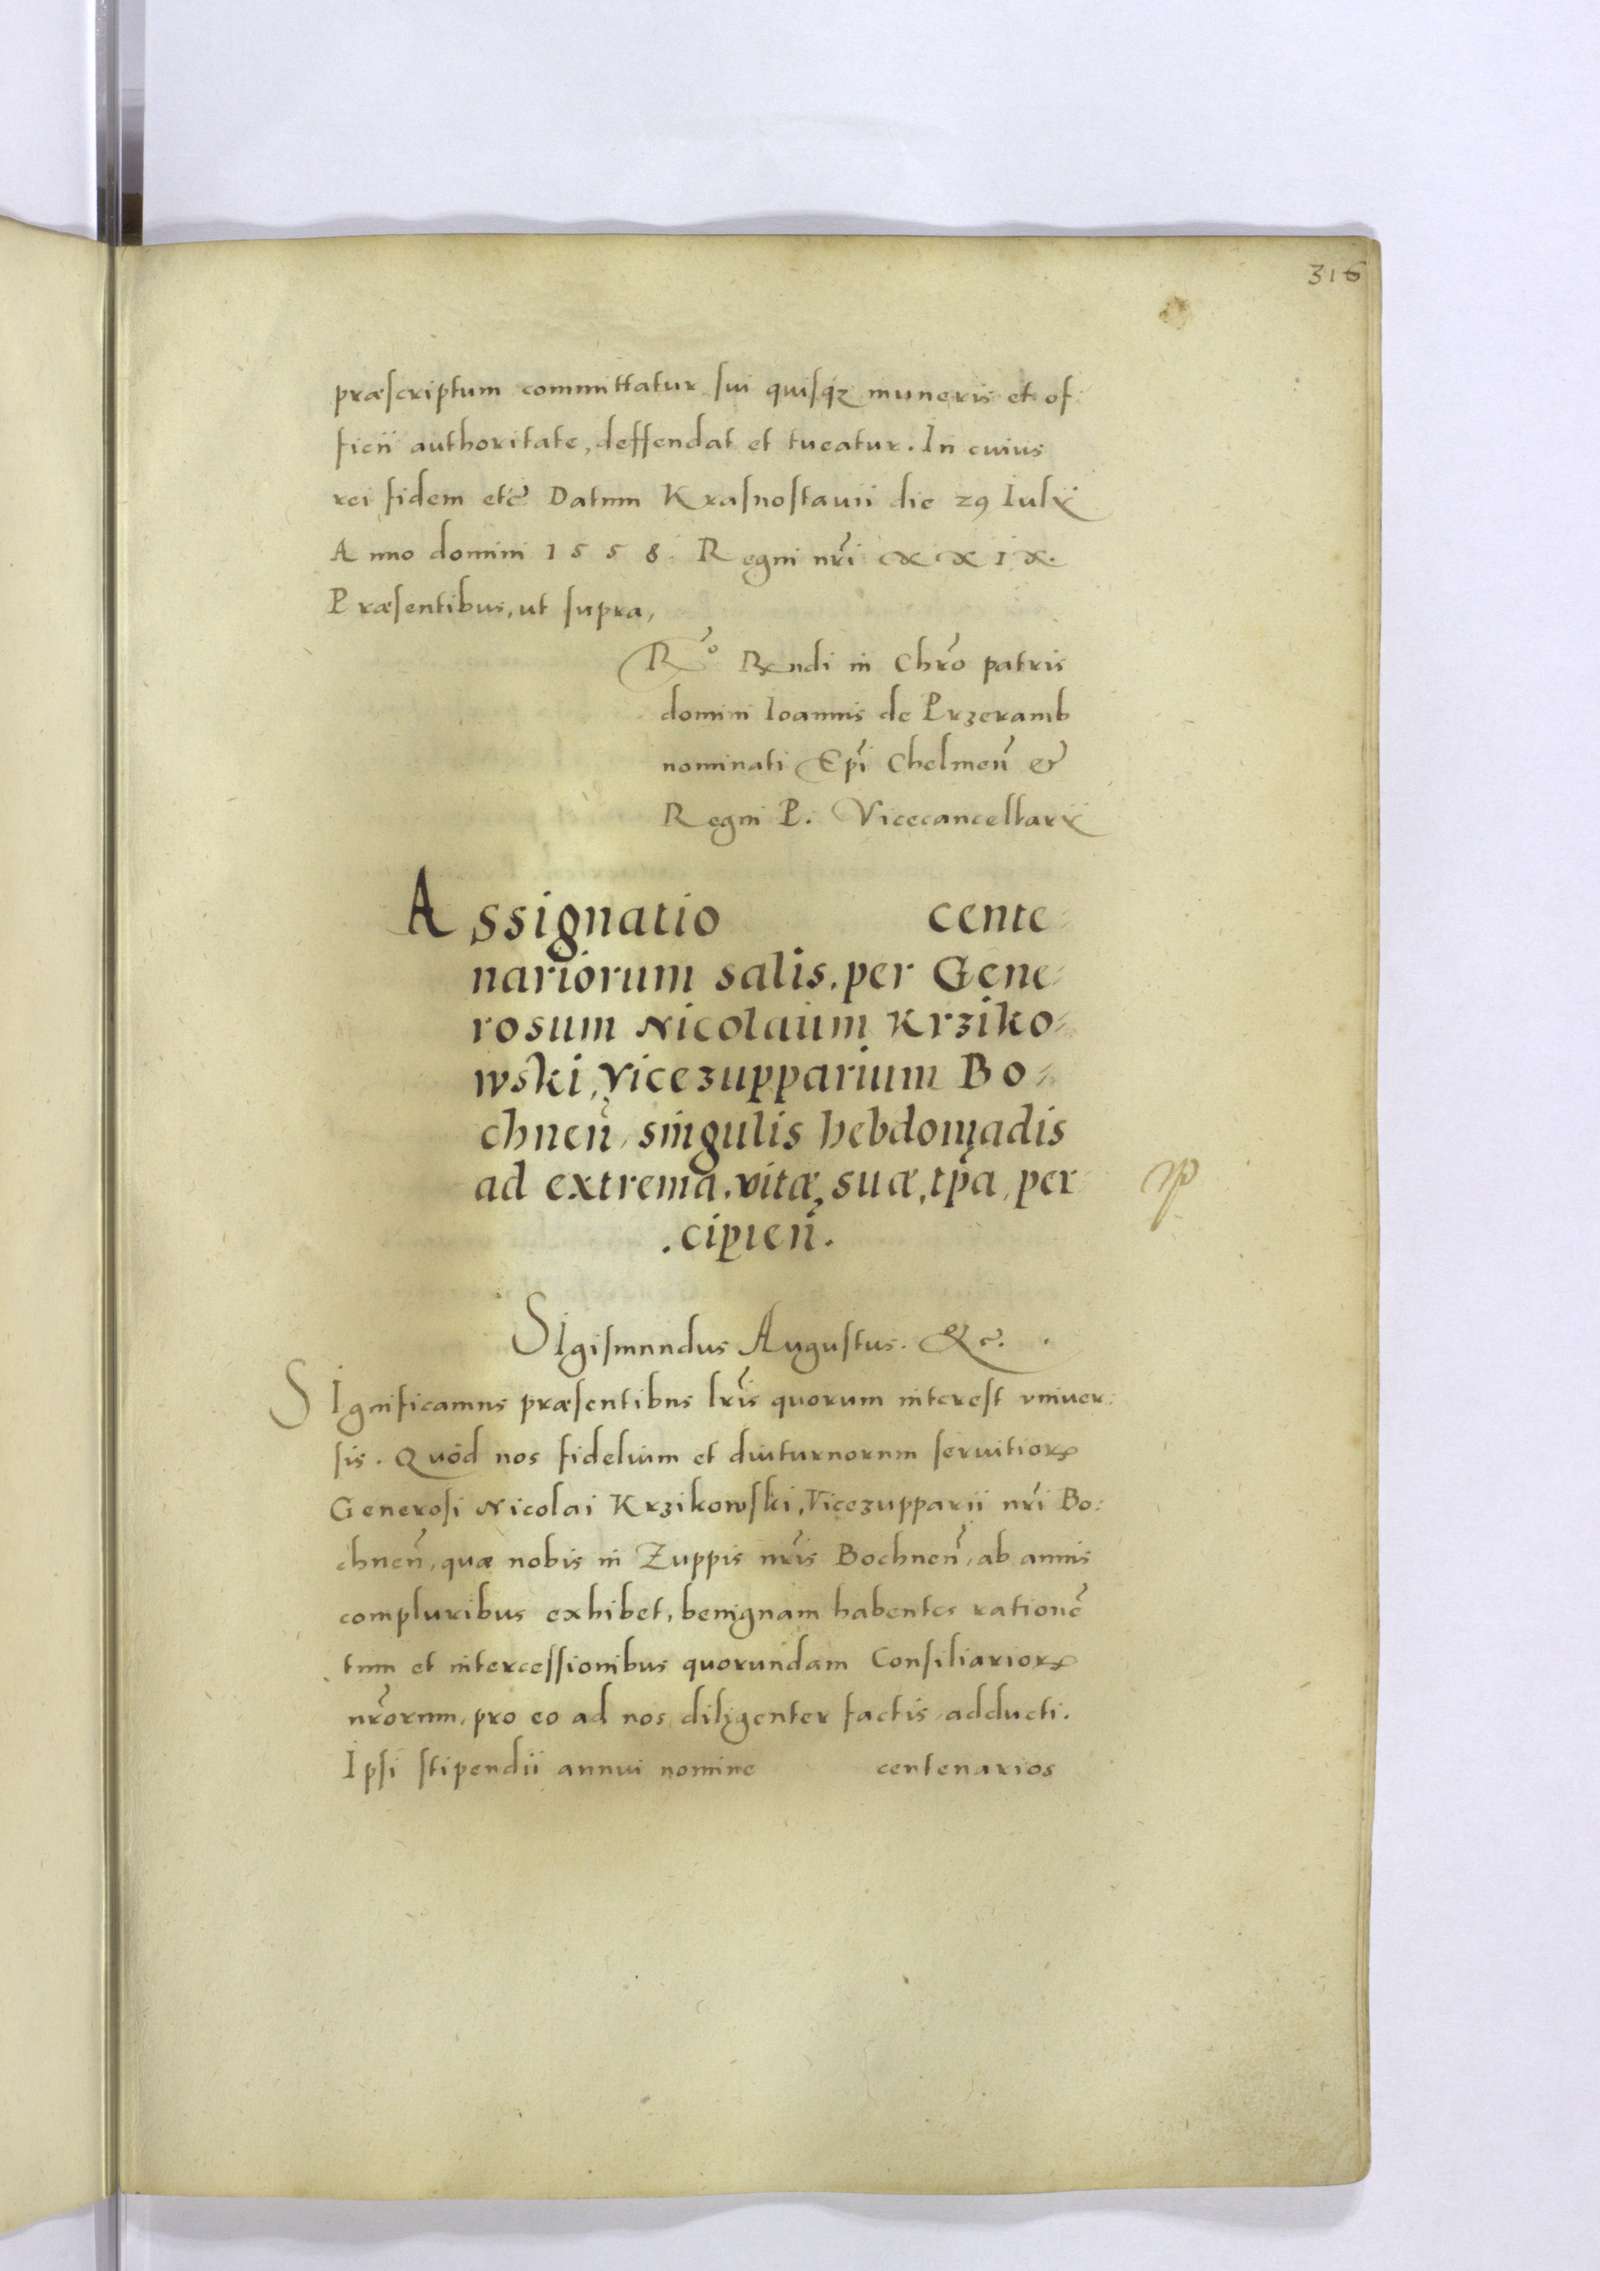 316
præscriptum committatur sui quisqz muneris et of
ficii authoritate, deffendat et tueatur. In cuius
rei fidem etc̃ Datum Krasnostauii die 29 Iulÿ
Anno domini 1558. Regni nr̃i XXIX.
Præsentibus, ut supra,
R̃o Rx̃ndi in Chr̃o patris
domini Ioannis de Przeramb
nominati Ep̃i Chelmeñ &
Regni P. Vicecancellarÿ
Assignatio cente-
nariorum salis, per Gene-
rosum Nicolaum Krziko-
wski, Vicezupparium Bo-
chneñ, singulis hebdomadis
ad extrema, vitæ, suæ, tp̃a, per-
.cipieñ.
SIgismundus Augustus. &c̃.
SIgnificamus præsentibus lr̃is quorum interest vniuer:
sis. Quód nos fidelium et diuturnorum seruitiorꝝ
Generosi Nicolai Krzikowski, Vicezupparii nr̃i Bo:
chneñ, quæ nobis in Zuppis nr̃is Bochneñ, ab annis
compluribus exhibet, benignam habentes rationẽ
tum et intercessionibus quorundam Consiliariorꝝ
nr̃orum, pro eo ad nos diligenter factis, adducti.
Ipsi stipendii annui nomine centenarios